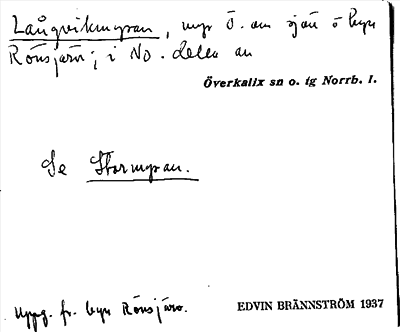 Långvikmyran, myr Ö. om sjön ö byn
Rönsjärv; i NO. delen av
Överkalix sn o. tg Norrb. l.
Se Stormyran.
Uppg. fr. byn Rönsjärv.
EDVIN BRÄNNSTRÖM 1937